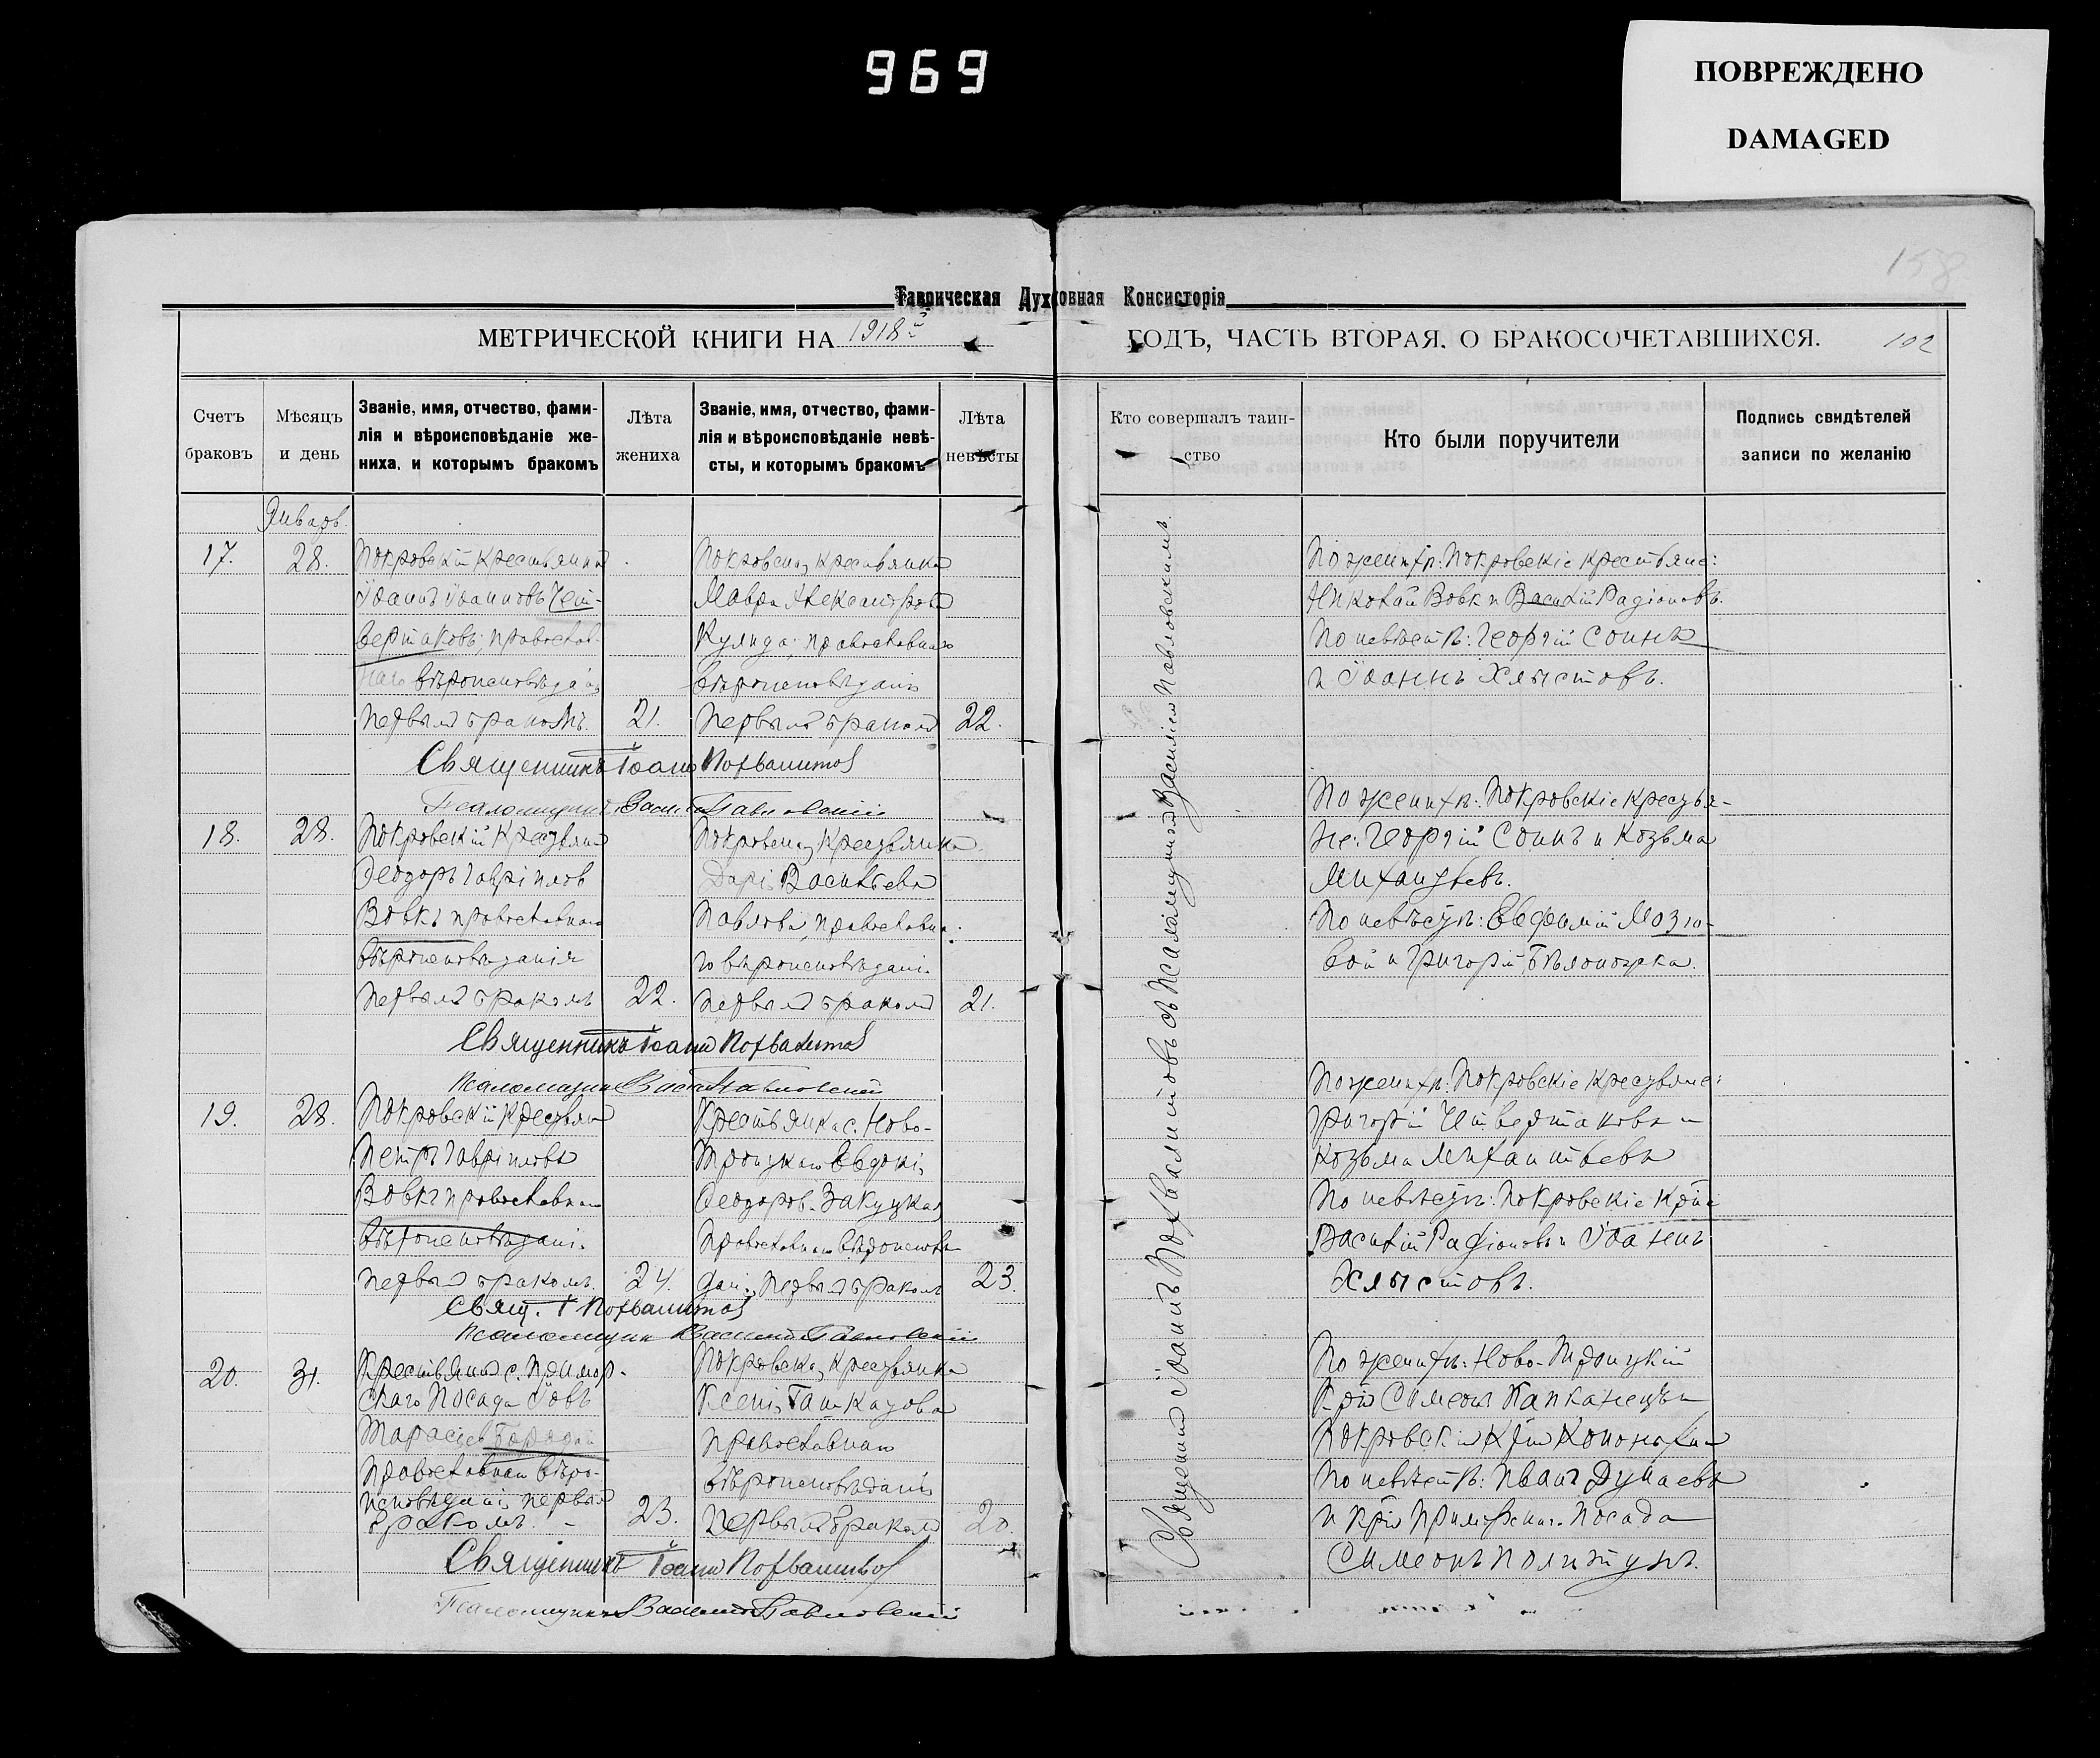 969
ПОВРЕЖДЕНО
DAMAGED
158
Таврическая Духовная Консисторія
МЕТРИЧЕСКОЙ КНИГИ НА 1918й ГОДЪ, ЧАСТЬ ВТОРАЯ. О БРАКОСОЧЕТАВШИХСЯ. 102
Счетъ браковъ
Мѣсяцъ и день
Званіе, имя, отчество, фами-
лія и вѣроисповѣданіе же-
ниха, и которымъ бракомъ
Лѣта жениха
Званіе, имя, отчество, фами-
лія и вѣроисповѣданіе невѣ-
сты, и которымъ бракомъ
Лѣта невѣсты
Кто совершалъ таин-
ство
Кто были поручители
Подпись свидѣтелей
записи по желанію
Январь.
17.
28.
Покровскій крестьянин
Іоаннъ Іоанновъ Чет-
вертаковъ; православ-
наго вѣроисповѣданія
первымъ бракомъ.
21.
Покровская крестьянка
Мавра Александрова
Кулида; православнаго
вѣроисповѣданія
первымъ бракомъ
22.
По женихѣ: Покровскіе крестьяне:
Николай Вовк и Василій Радіоновъ.
По невѣстѣ: Георгій Соинъ
и Іоаннъ Хлыстовъ.
Священникъ Іоаннъ Похвалитовъ
Псаломщикъ Василій Павловскій
18.
28.
Покровскій крестьянин
Ѳеодоръ Гавріиловъ
Вовкъ православнаго
вѣроисповѣданія
первымъ бракомъ
22.
Покровская крестьянка
Дарія Васильева
Павлова, православна-
го вѣроисповѣданія
первымъ бракомъ
21.
По женихѣ: Покровскіе крестья-
не: Георгій Соинъ и Козьма
Михайловъ.
По невѣстѣ: Евфимій Мозго-
вой и Григорій
Священникъ Іоаннъ Похвалитовъ
Псаломщикъ Василій Павловскій
19.
28.
Покровскій крестьянин
Петръ Гавріиловъ
Вовкъ православнаго
вѣроисповѣданія
первымъ бракомъ
24.
Крестьянка с. Ново-
Троицкаго Евдокія
Ѳеодоров. Закуцкая
православнаго вѣроисповѣ-
данія, первымъ бракомъ
23.
По женихѣ: Покровскіе крестьяне:
Григорій Четвертаковъ и
Козьма
По невѣстѣ: Покровскіе кр-не
Василій Радіоновъ и Іоаннъ
Хлыстовъ.
Свящ. І. Похвалитовъ
Псаломщикъ Василій Павловскій
20.
31.
Крестьянинъ с. Примор-
скаго Посада Іовъ
православнаго вѣро-
исповѣданія первымъ
бракомъ.
23.
Покровская крестьянка
Ксенія
православнаго
вѣроисповѣданія
первымъ бракомъ
20.
По женихѣ: Ново-Троицкій
кр-нъ Симеонъ Капканецъ и
Покровскій кр-нъ
По невѣстѣ: Иванъ Дунаевъ
и кр-нъ Приморскаго Посада
Симеонъ
Священникъ Іоаннъ Похвалитовъ
Псаломщикъ Василій Павловскій
Священникъ Іоаннъ Похвалитовъ съ псаломщикомъ Василіемъ Павловскимъ.